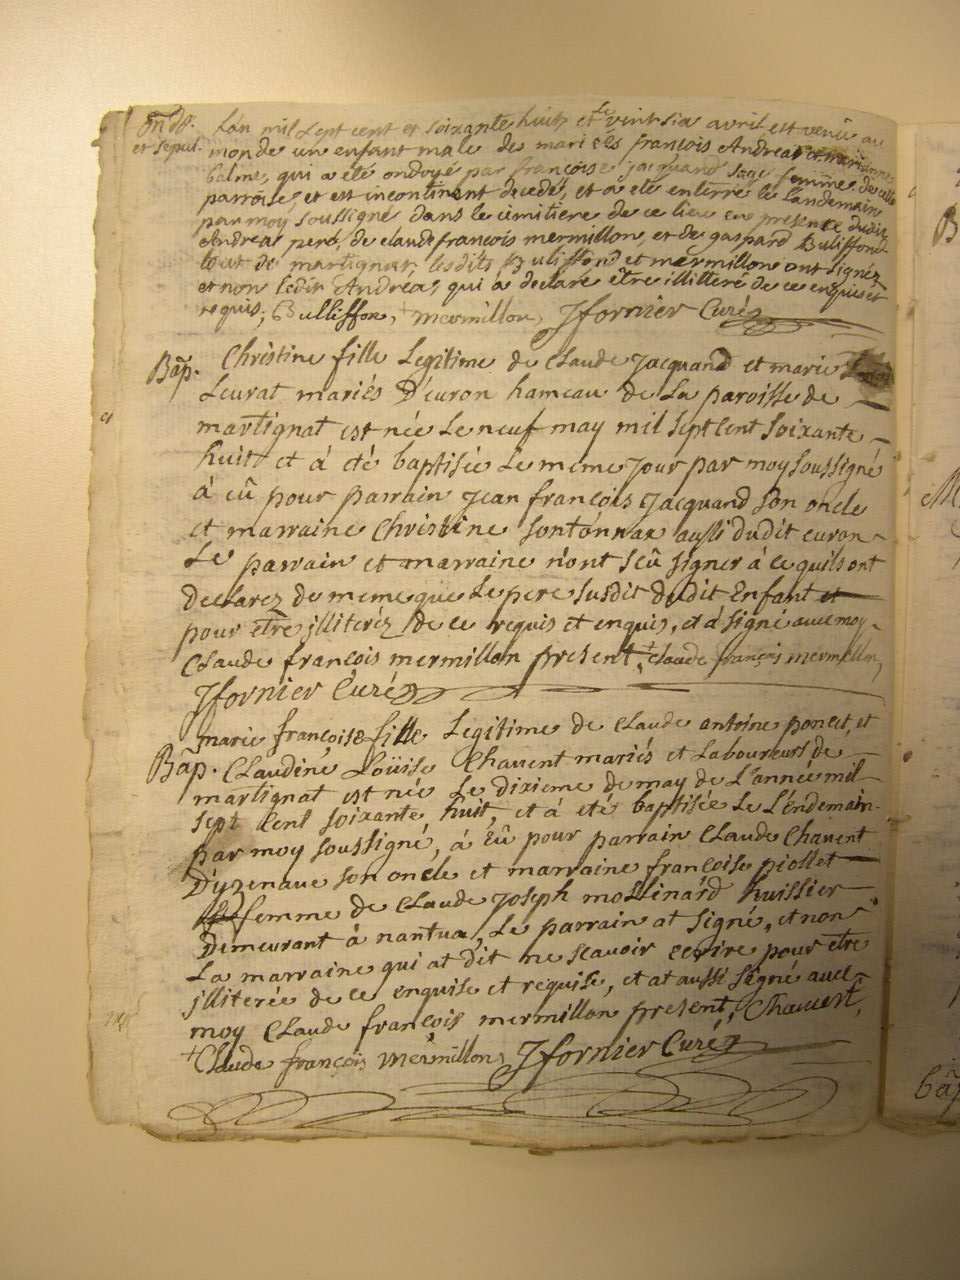 ond. L'an mil sept cent et soixante huit et le vint six avril est venu au
et sepul. monde un enfant male des mariés françois Andrea et marianne
balme, qui a été ondoyé par françoise jacquand sage femme de cette
parroisse, et est incontinent decedé, et a été enterré le landemain
par moy soussigné dans le cimitiere de ce lieu en presence dudit
Andrea pere, de claude françois mermillon, et de gaspard Buliffond
tout de martignat, lesdits Buliffond et mermillon ont signéz
et non ledit Andrea, qui a declaré être illitteré de ce enquis et
requis; Bulliffon, mermillon, Jfornier Curé
Bap. Christine fille Legitime de Claude Jacquand et marie
Leurat mariés D'euron hameau de La paroisse de
martignat est née Le neuf may mil sept Cent soixante
huit et à été baptisée Le meme jour par moy soussigné
à eû pour parrain jean françois jacquand son oncle
et marraine Christine sontonnax aussi dudit euron
Le parrain et marraine n'ont sçû signer à ce quils ont
declarez de meme que Le pere susdit dudit Enfant et
pour être illiteréz de ce requis et enquis, et à signé avec moy
Claude françois mermillon present, + claude françois mermillon,
Jfornier Curé
marie françoise fille Legitime de Claude antoine poncet, et
Bap. Claudine Loüise Chavent mariés et Laboureurs de
martignat est née Le dixieme de may de L'année mil
sept Cent soixante huit, et à été baptisée Le L'endemain
par moy soussigné, à Eû pour parrain Claude Chavent
D'yzenave son oncle et marraine françoise piollet
femme de Claude Joseph mollinard huissier
Demeurant à nantua, Le parrain at signé, et non
La marraine qui at dit ne scavoir ecrire pour etre
illiterée de ce enquise et requise, et at aussi signé avec
moy Claude françois mermillon present, Chavent,
+ Claude françois mermillon, Jfornier Curé